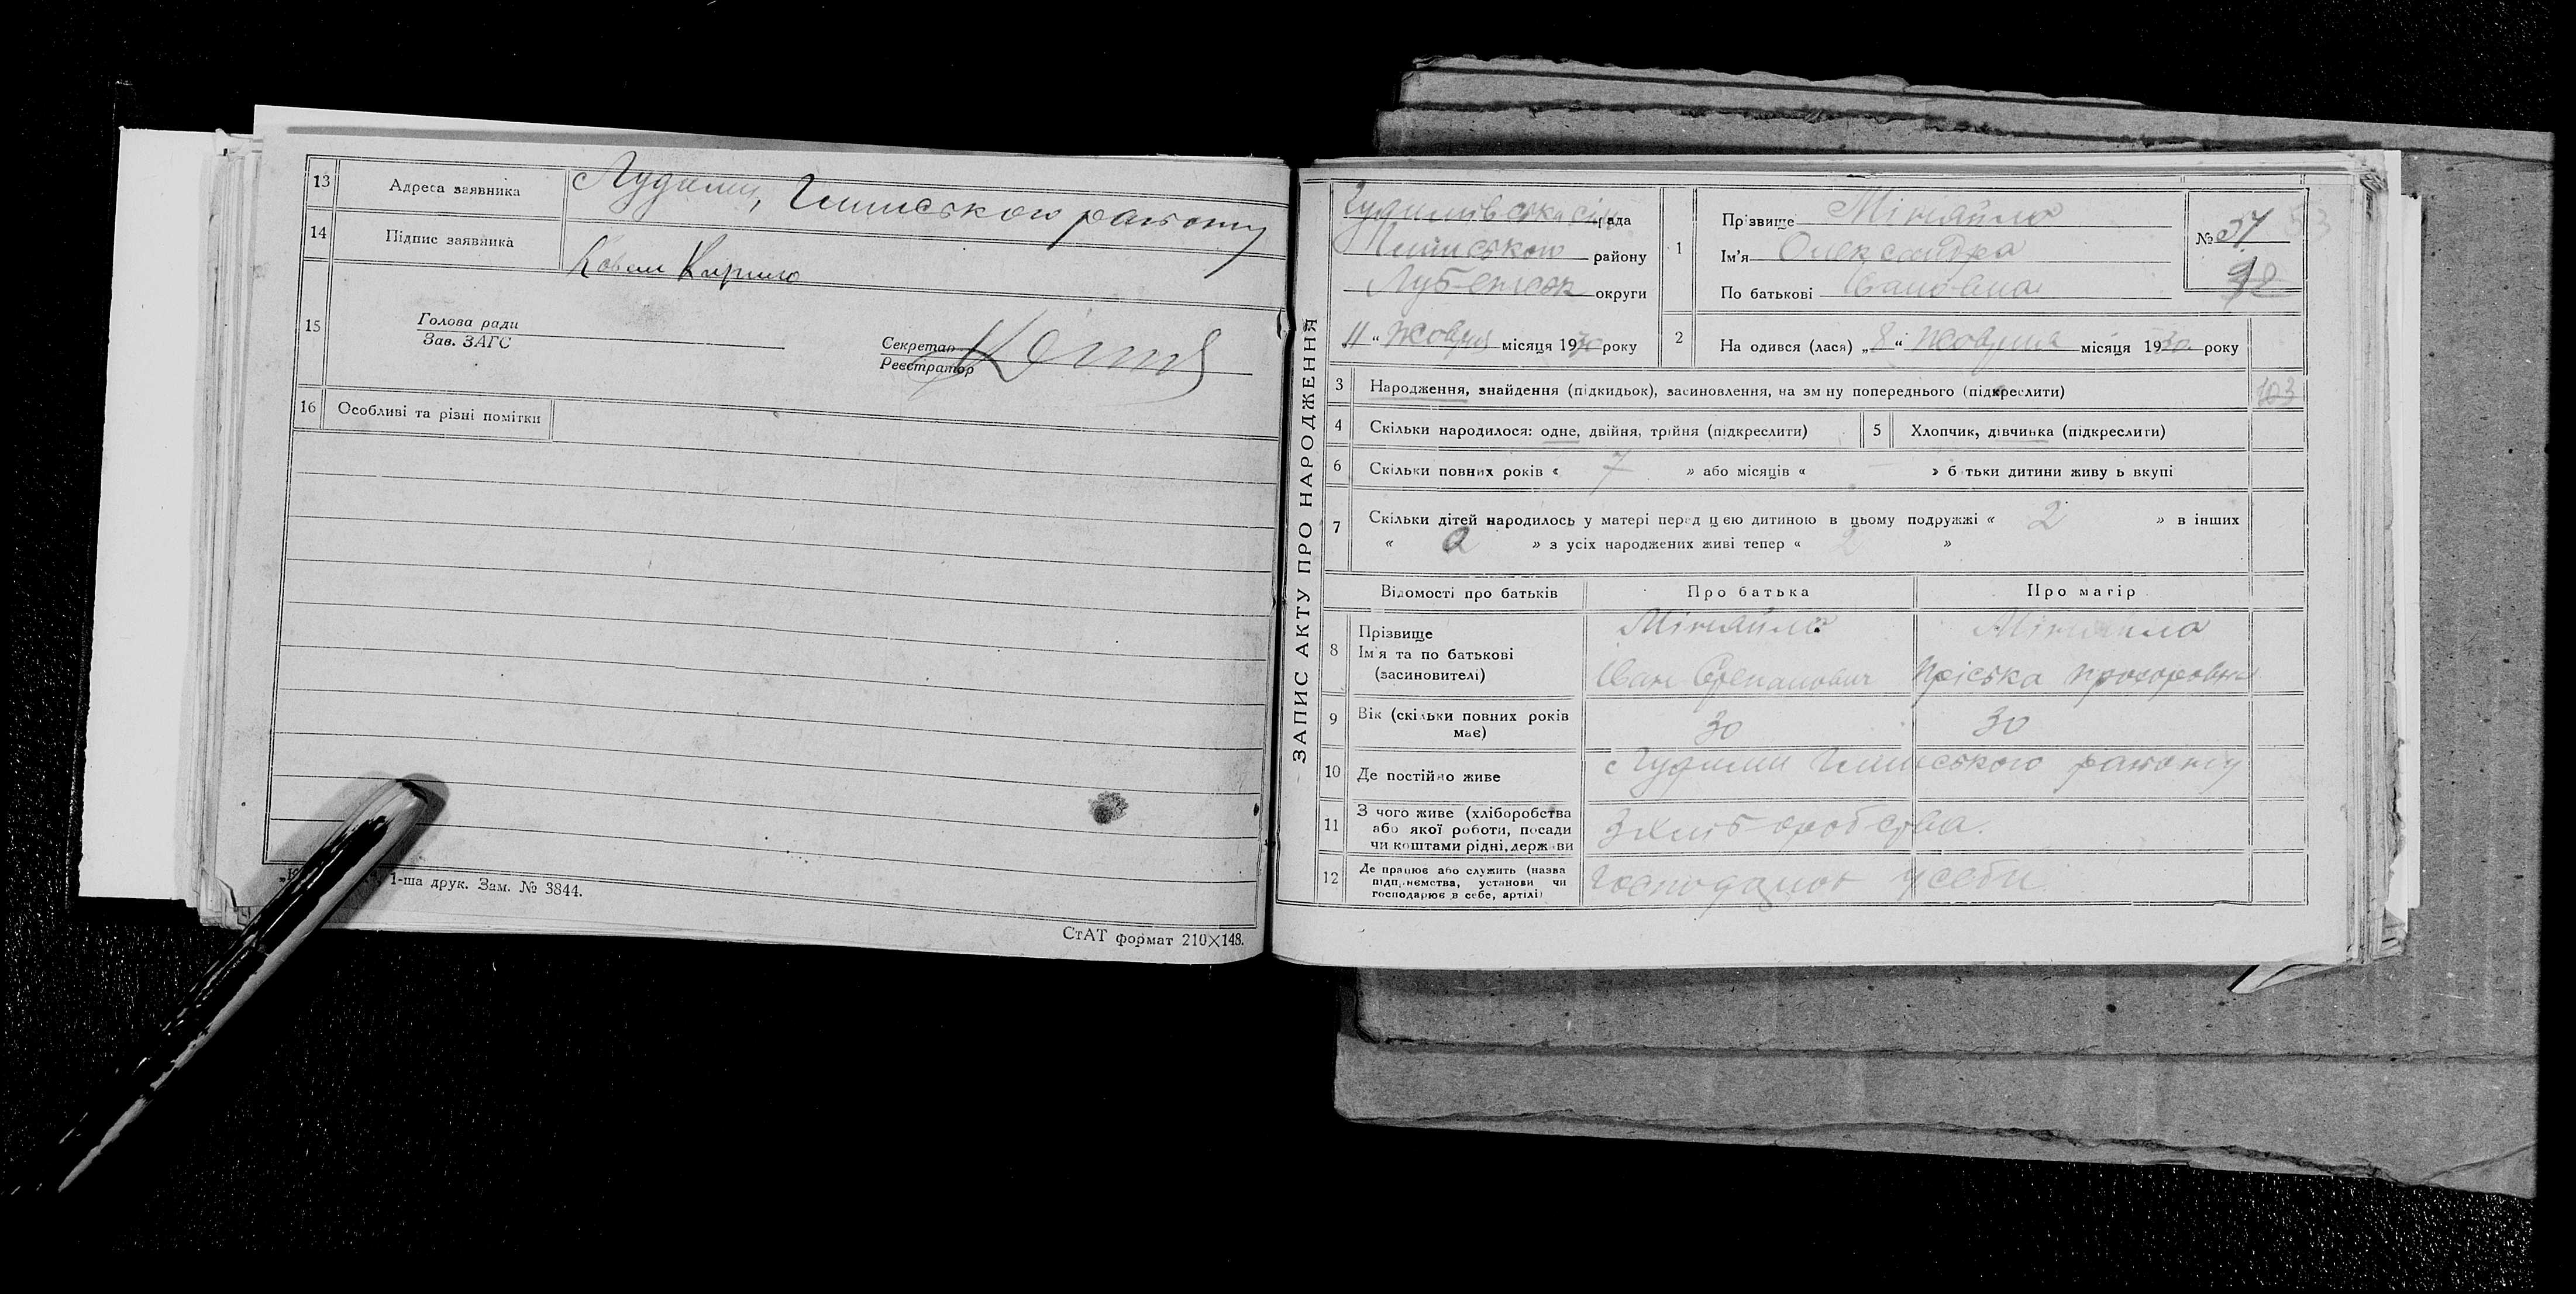 13 Адреса заявника Лудими, Глинського району
14 Підпис заявника Коваль Кирило
15 Голова ради
Зав. ЗАГС
Секретар
Реєстратор
16 Особливі та різні помітки
1-ша друк. Зам. № 3844.
СтАТ формат 210×148.
ЗАПИС АКТУ ПРО НАРОДЖЕННЯ
рада
району
округи
11 " Жовтня місяця 1930 року
1 Прізвище Мінайло
Ім'я Олександра
По батькові Івановна
№ 37
2 На одився (лася) „8" Жовтня місяця 1930 року
3 Народження, знайдення (підкидьок), засиновлення, на зм ну попереднього (підкреслити) 103
4 Скільки народилося: одне, двійня, трійня (підкреслити) 5 Хлопчик, дівчинка (підкреслити)
6 Скільки повних років « 7 » або місяців « — » б тьки дитини живу ь вкупі
7 Скільки дітей народилось у матері перед цією дитиною в цьому подружжі « 2 » в інших
« 0 » з усіх народжених живі тепер « 2 »
Відомості про батьків Про батька Про матір
8 Прізвище Мінайло Мінайло
Ім'я та по батькові
(засиновителі) Іван Степанович Пріська Прохоровна
9 Вік (скільки повних років 30 30
має)
10 Де постійно живе Лудими Глинського району
11 З чого живе (хліборобства
або якої роботи, посади З хліборобства.
чи коштами рідні, держави
12 Де працює або служить (назва
підприємства, установи чи Господарює у себе
господарює в себе, артілі)